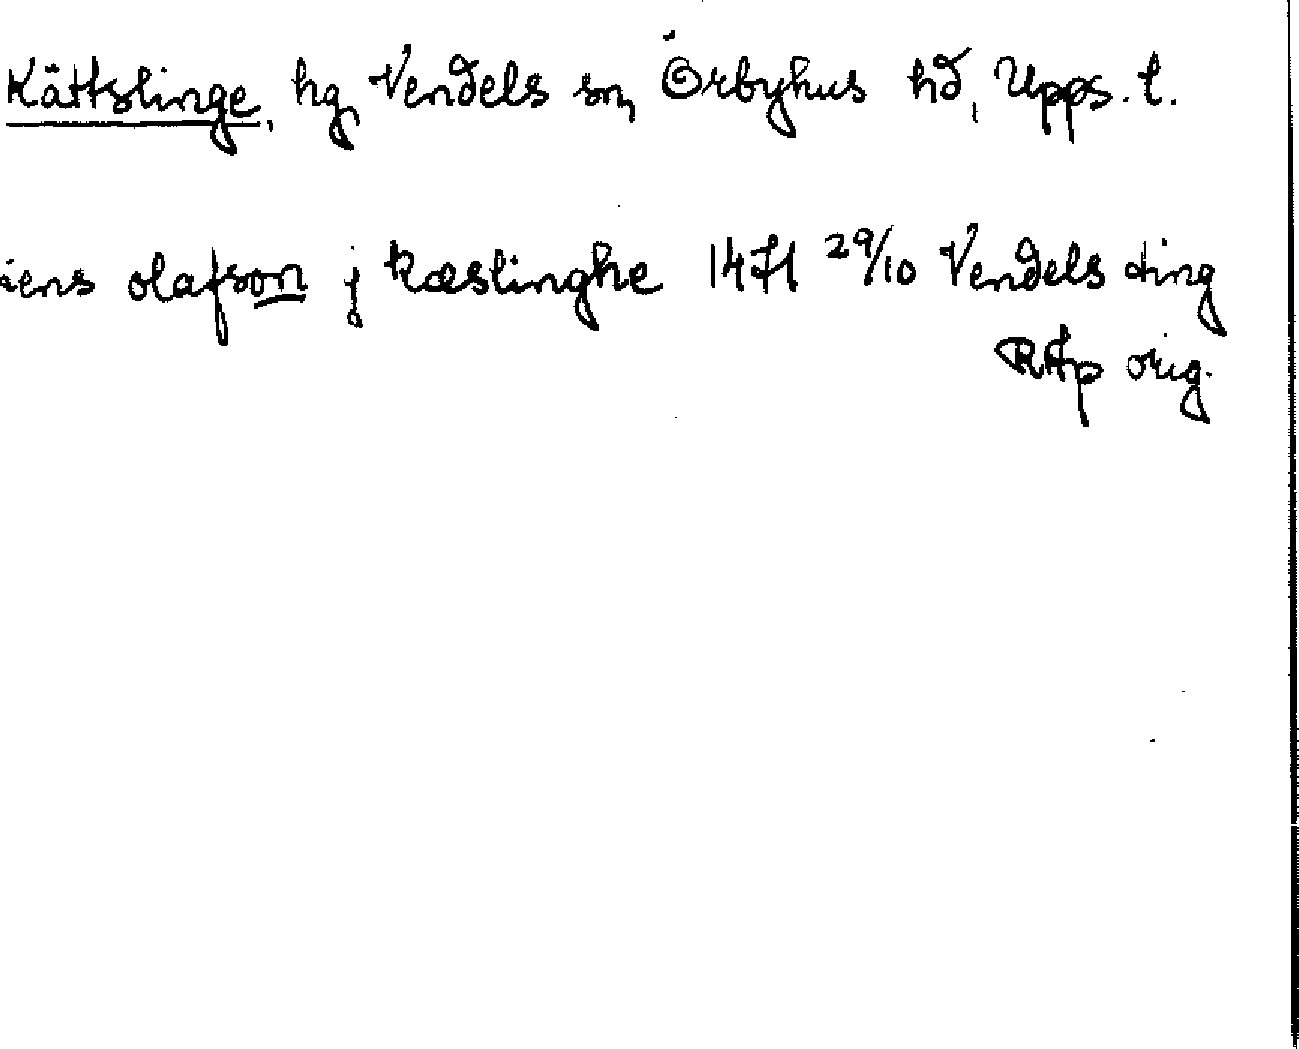 Kättslinge, hg, Vendels sn, Örbyhus hd, Upps. l.
iens olafson j kæslinghe 1471 29/10 Vendels ting
RAp orig.